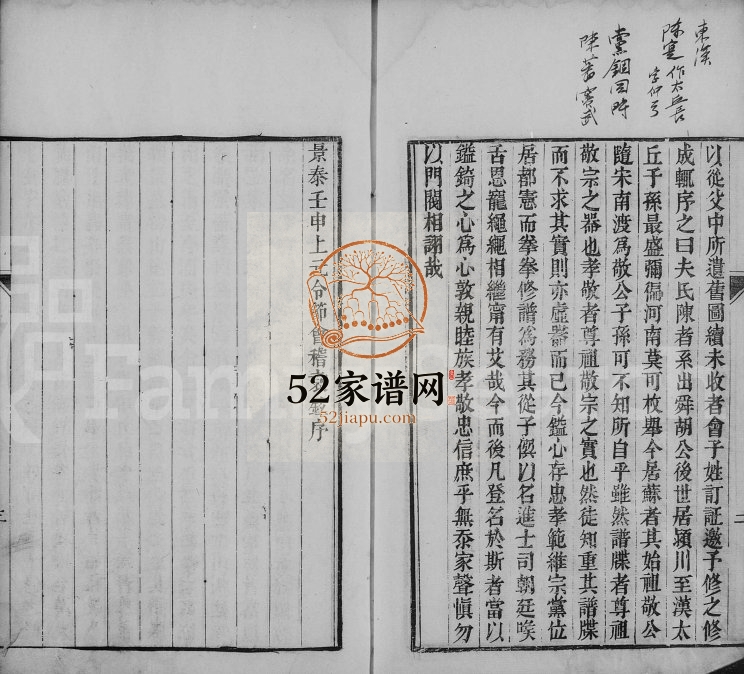 東漢
陳寔作太丘長
字仲弓
黨錮同時
陳蕃竇武
以從父中所遺舊圖續未收者會子姓訂証邀予修之修
成輒序之曰夫氏陳者系出舜胡公後世居潁川至漢太
丘子孫最盛彌徧河南莫可枚舉今居蘇者其始祖敬公
隨宋南渡爲敬公子孫可不知所自乎雖然譜牒者尊祖
敬宗之器也孝敬者尊祖敬宗之實也然徒知重其譜牒
而不求其實則亦虛器而已今鎰心存忠孝範維宗黨位
居都憲而拳拳修譜爲務其從子僎以名進士司朝廷喉
舌恩寵繩繩相繼甯有艾哉今而後凡登名於斯者當以
鎰錡之心爲心敦親睦族孝敬忠信庶乎無忝家聲愼勿
以門閥相謝哉
景泰壬申上元令節會稽
序
52家谱网
52jiapu.com
二